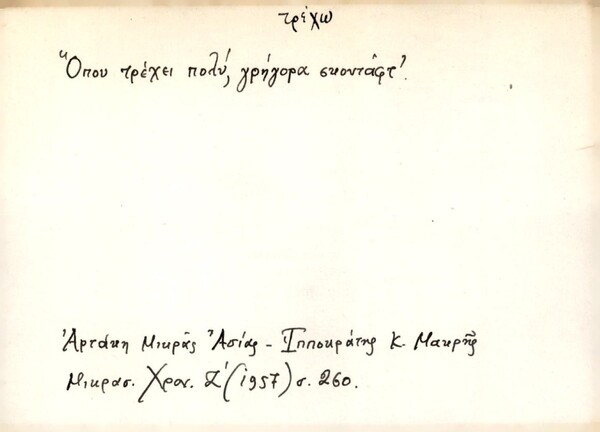 τρέχω
Ὅπου τρέχει πολύ, γρήγορα σκοντάφτ'.
Ἀρτάκη Μικρᾶς Ἀσίας - Ἱπποκράτης Κ. Μακρῆς
Μικρασ. Χρον. Ζ' (1957) σ. 260.